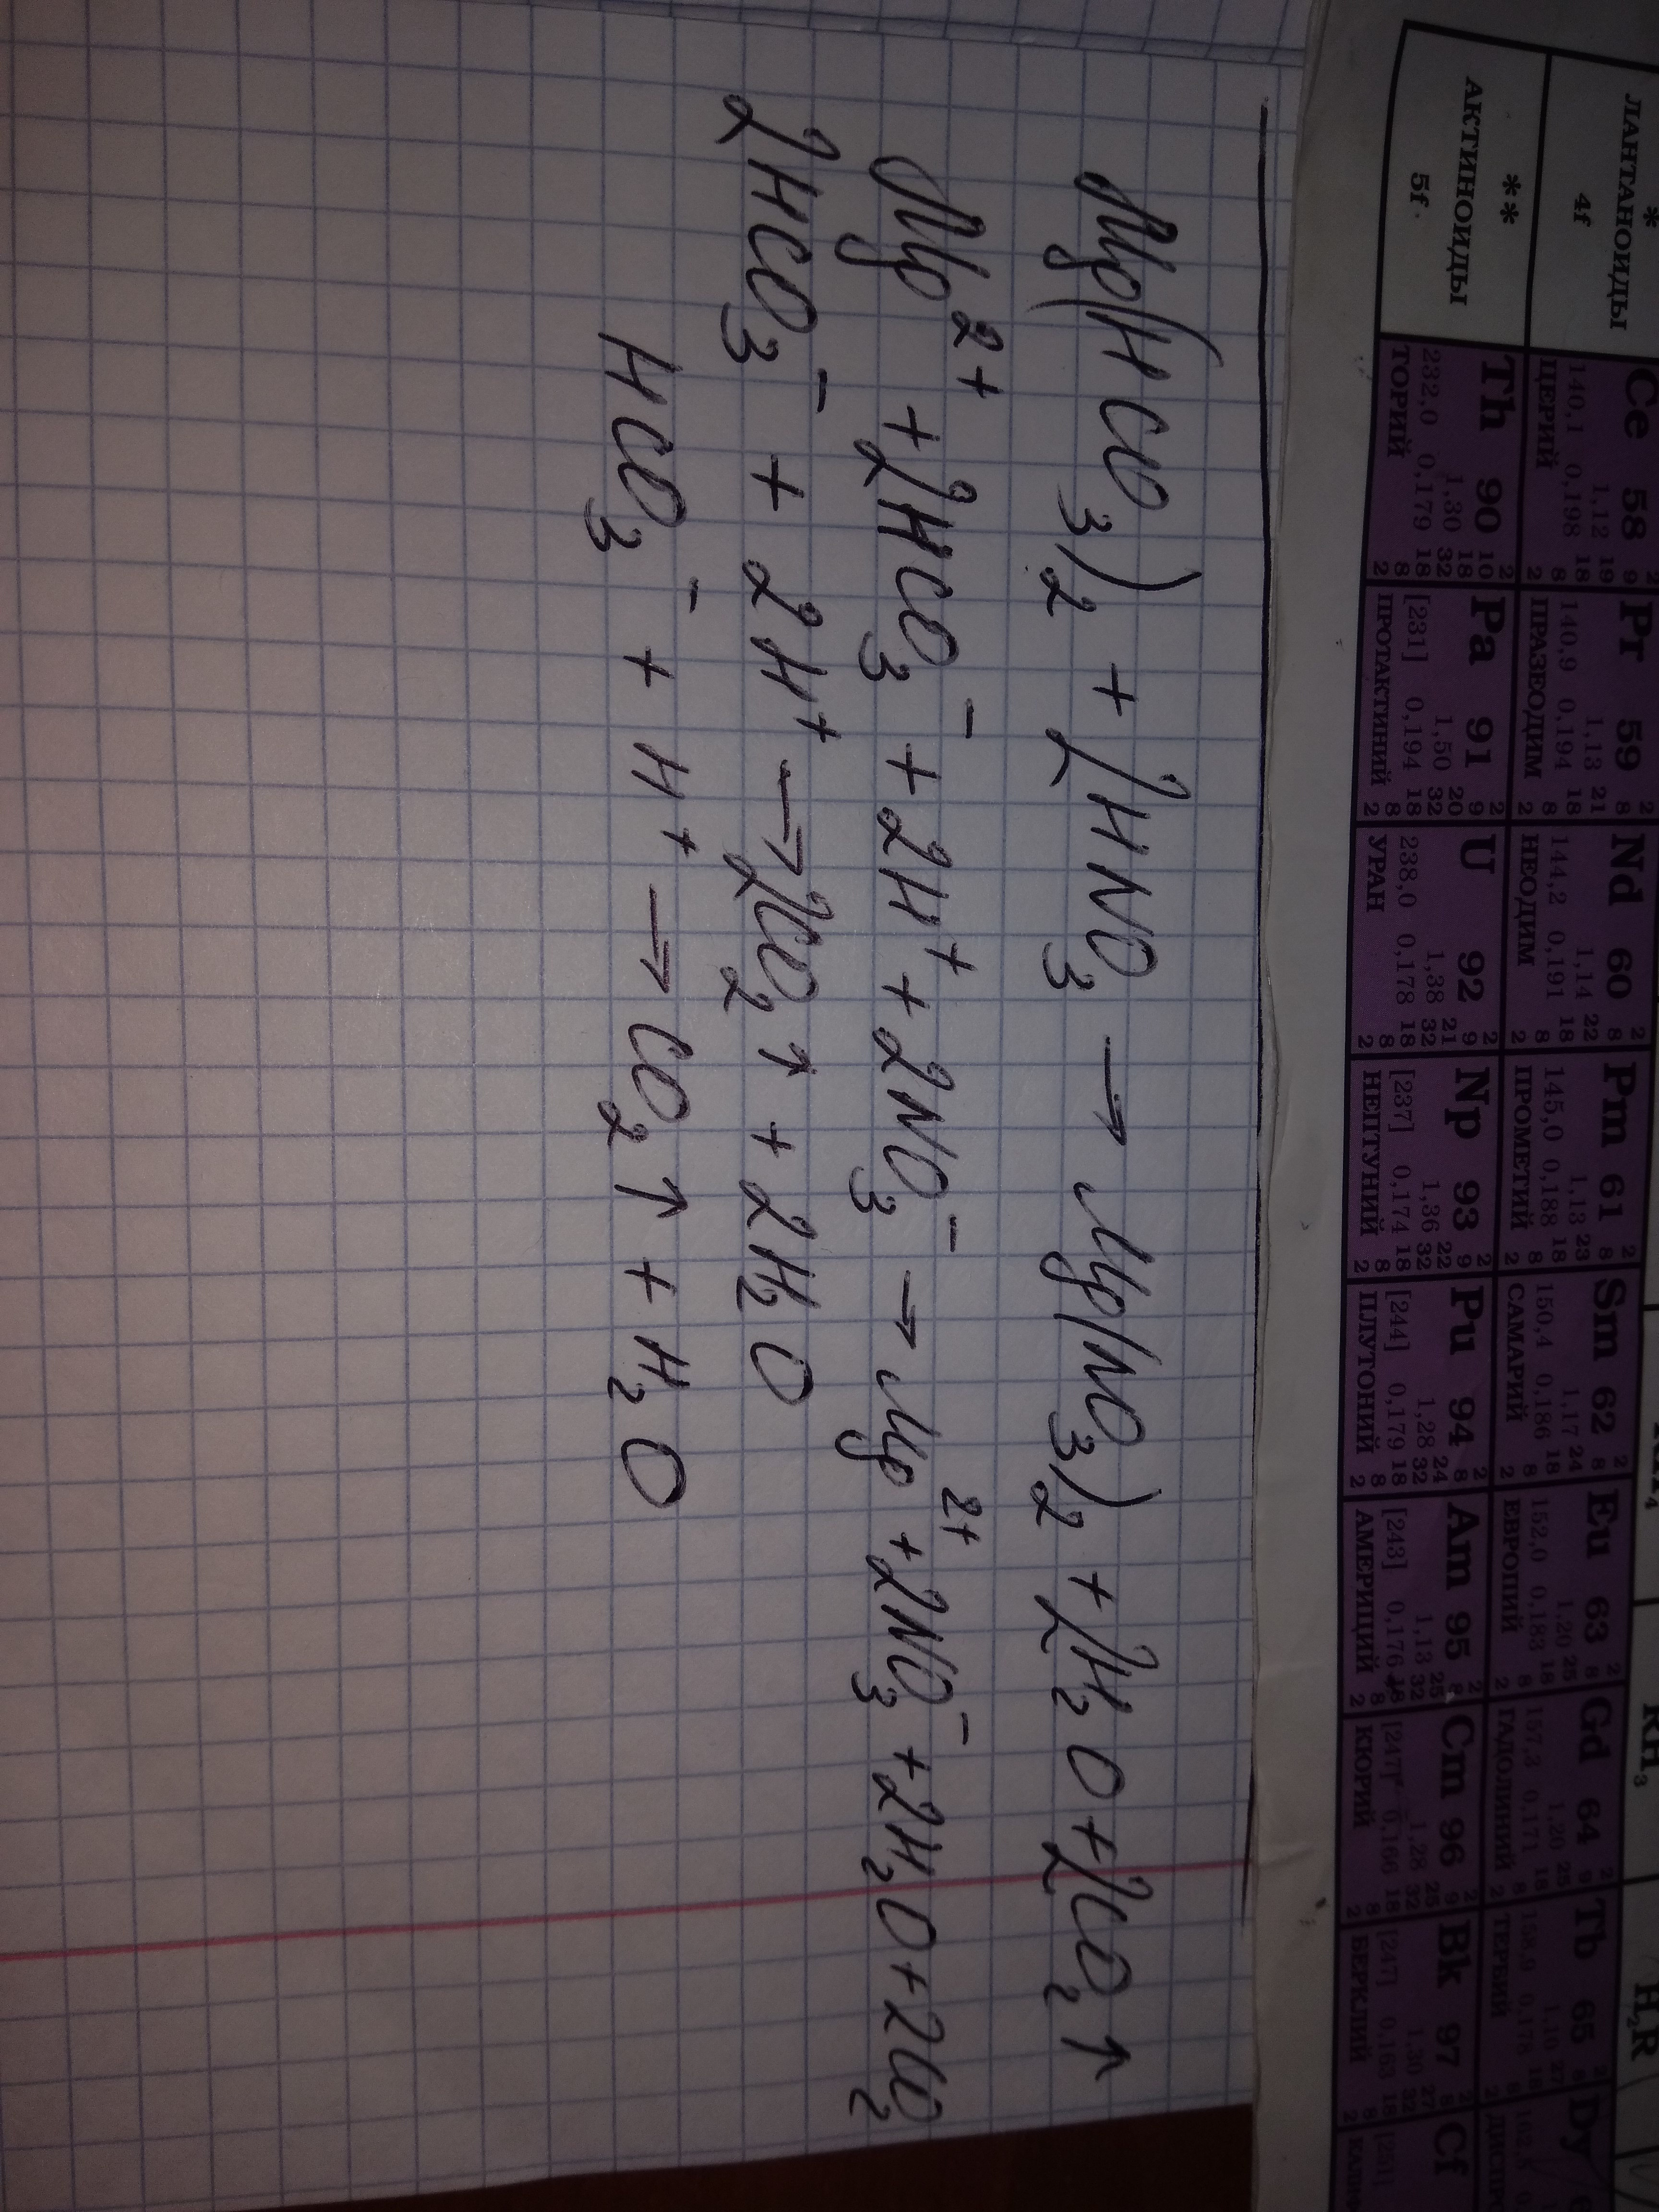 * ЛАНТАНОИДЫ 4f
Ce 58 140,1 1,12 0,198 ЦЕРИЙ
Pr 59 140,9 1,13 0,194 ПРАЗЕОДИМ
Nd 60 144,2 1,14 0,191 НЕОДИМ
Pm 61 145,0 1,13 0,188 ПРОМЕТИЙ
Sm 62 150,4 1,17 0,186 САМАРИЙ
Eu 63 152,0 1,20 0,183 ЕВРОПИЙ
Gd 64 157,3 1,20 0,171 ГАДОЛИНИЙ
Tb 65 158,9 1,10 0,178 ТЕРБИЙ
Dy
** АКТИНОИДЫ 5f
Th 90 232,0 1,30 0,179 ТОРИЙ
Pa 91 [231] 1,50 0,194 ПРОТАКТИНИЙ
U 92 238,0 1,38 0,178 УРАН
Np 93 [237] 1,36 0,174 НЕПТУНИЙ
Pu 94 [244] 1,28 0,179 ПЛУТОНИЙ
Am 95 [243] 1,13 0,176 АМЕРИЦИЙ
Cm 96 [247] 1,28 0,166 КЮРИЙ
Bk 97 [247] 1,30 0,163 БЕРКЛИЙ
Cf [251]
RH₃ H₂R
Mg(HCO₃)₂ + 2HNO₃ → Mg(NO₃)₂ + 2H₂O + 2CO₂↑
Mg²⁺ + 2HCO₃⁻ + 2H⁺ + 2NO₃⁻ → Mg²⁺ + 2NO₃⁻ + 2H₂O + 2CO₂
2HCO₃⁻ + 2H⁺ → 2CO₂↑ + 2H₂O
HCO₃⁻ + H⁺ → CO₂↑ + H₂O